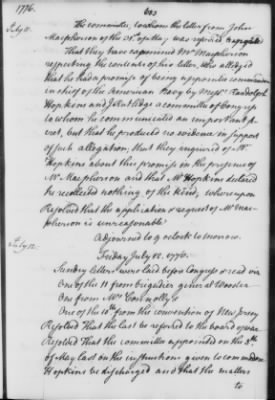 1776.
July 11.
The committee, to whom the letter from John
Macpherson of the 31. of May, was referred
That they have examined Mr Macpherson
respecting the contents of his letter, who alledged
that he had a promise of being appointed commander
in chief of the American Navy by Messrs Randolph
Hopkins and John Rutledge a committee of Congress
to whom he communicated an important
secret, but that he produced no evidence in support
of such allegation; that they enquired of Mr
Hopkins about this promise in the presence of
Mr Macpherson and that Mr Hopkins declared
he recollected nothing of the kind, whereupon
Resolved That the application & request of Mr Macpherson
is unreasonable
Adjourned to 9 oClock to morrow.
July 12.
Friday July 12. 1776.
Sundry letters were laid before Congress & read viz
One of the 11 from brigadier general Wooster
One from Mrs Connolly &
One of the 10th from the convention of New Jersey
Resolved That the last be referred to the board of war
Resolved That the committee appointed on the 8th
of May last on the instructions given to commodore
Hopkins be discharged and that the matters
to